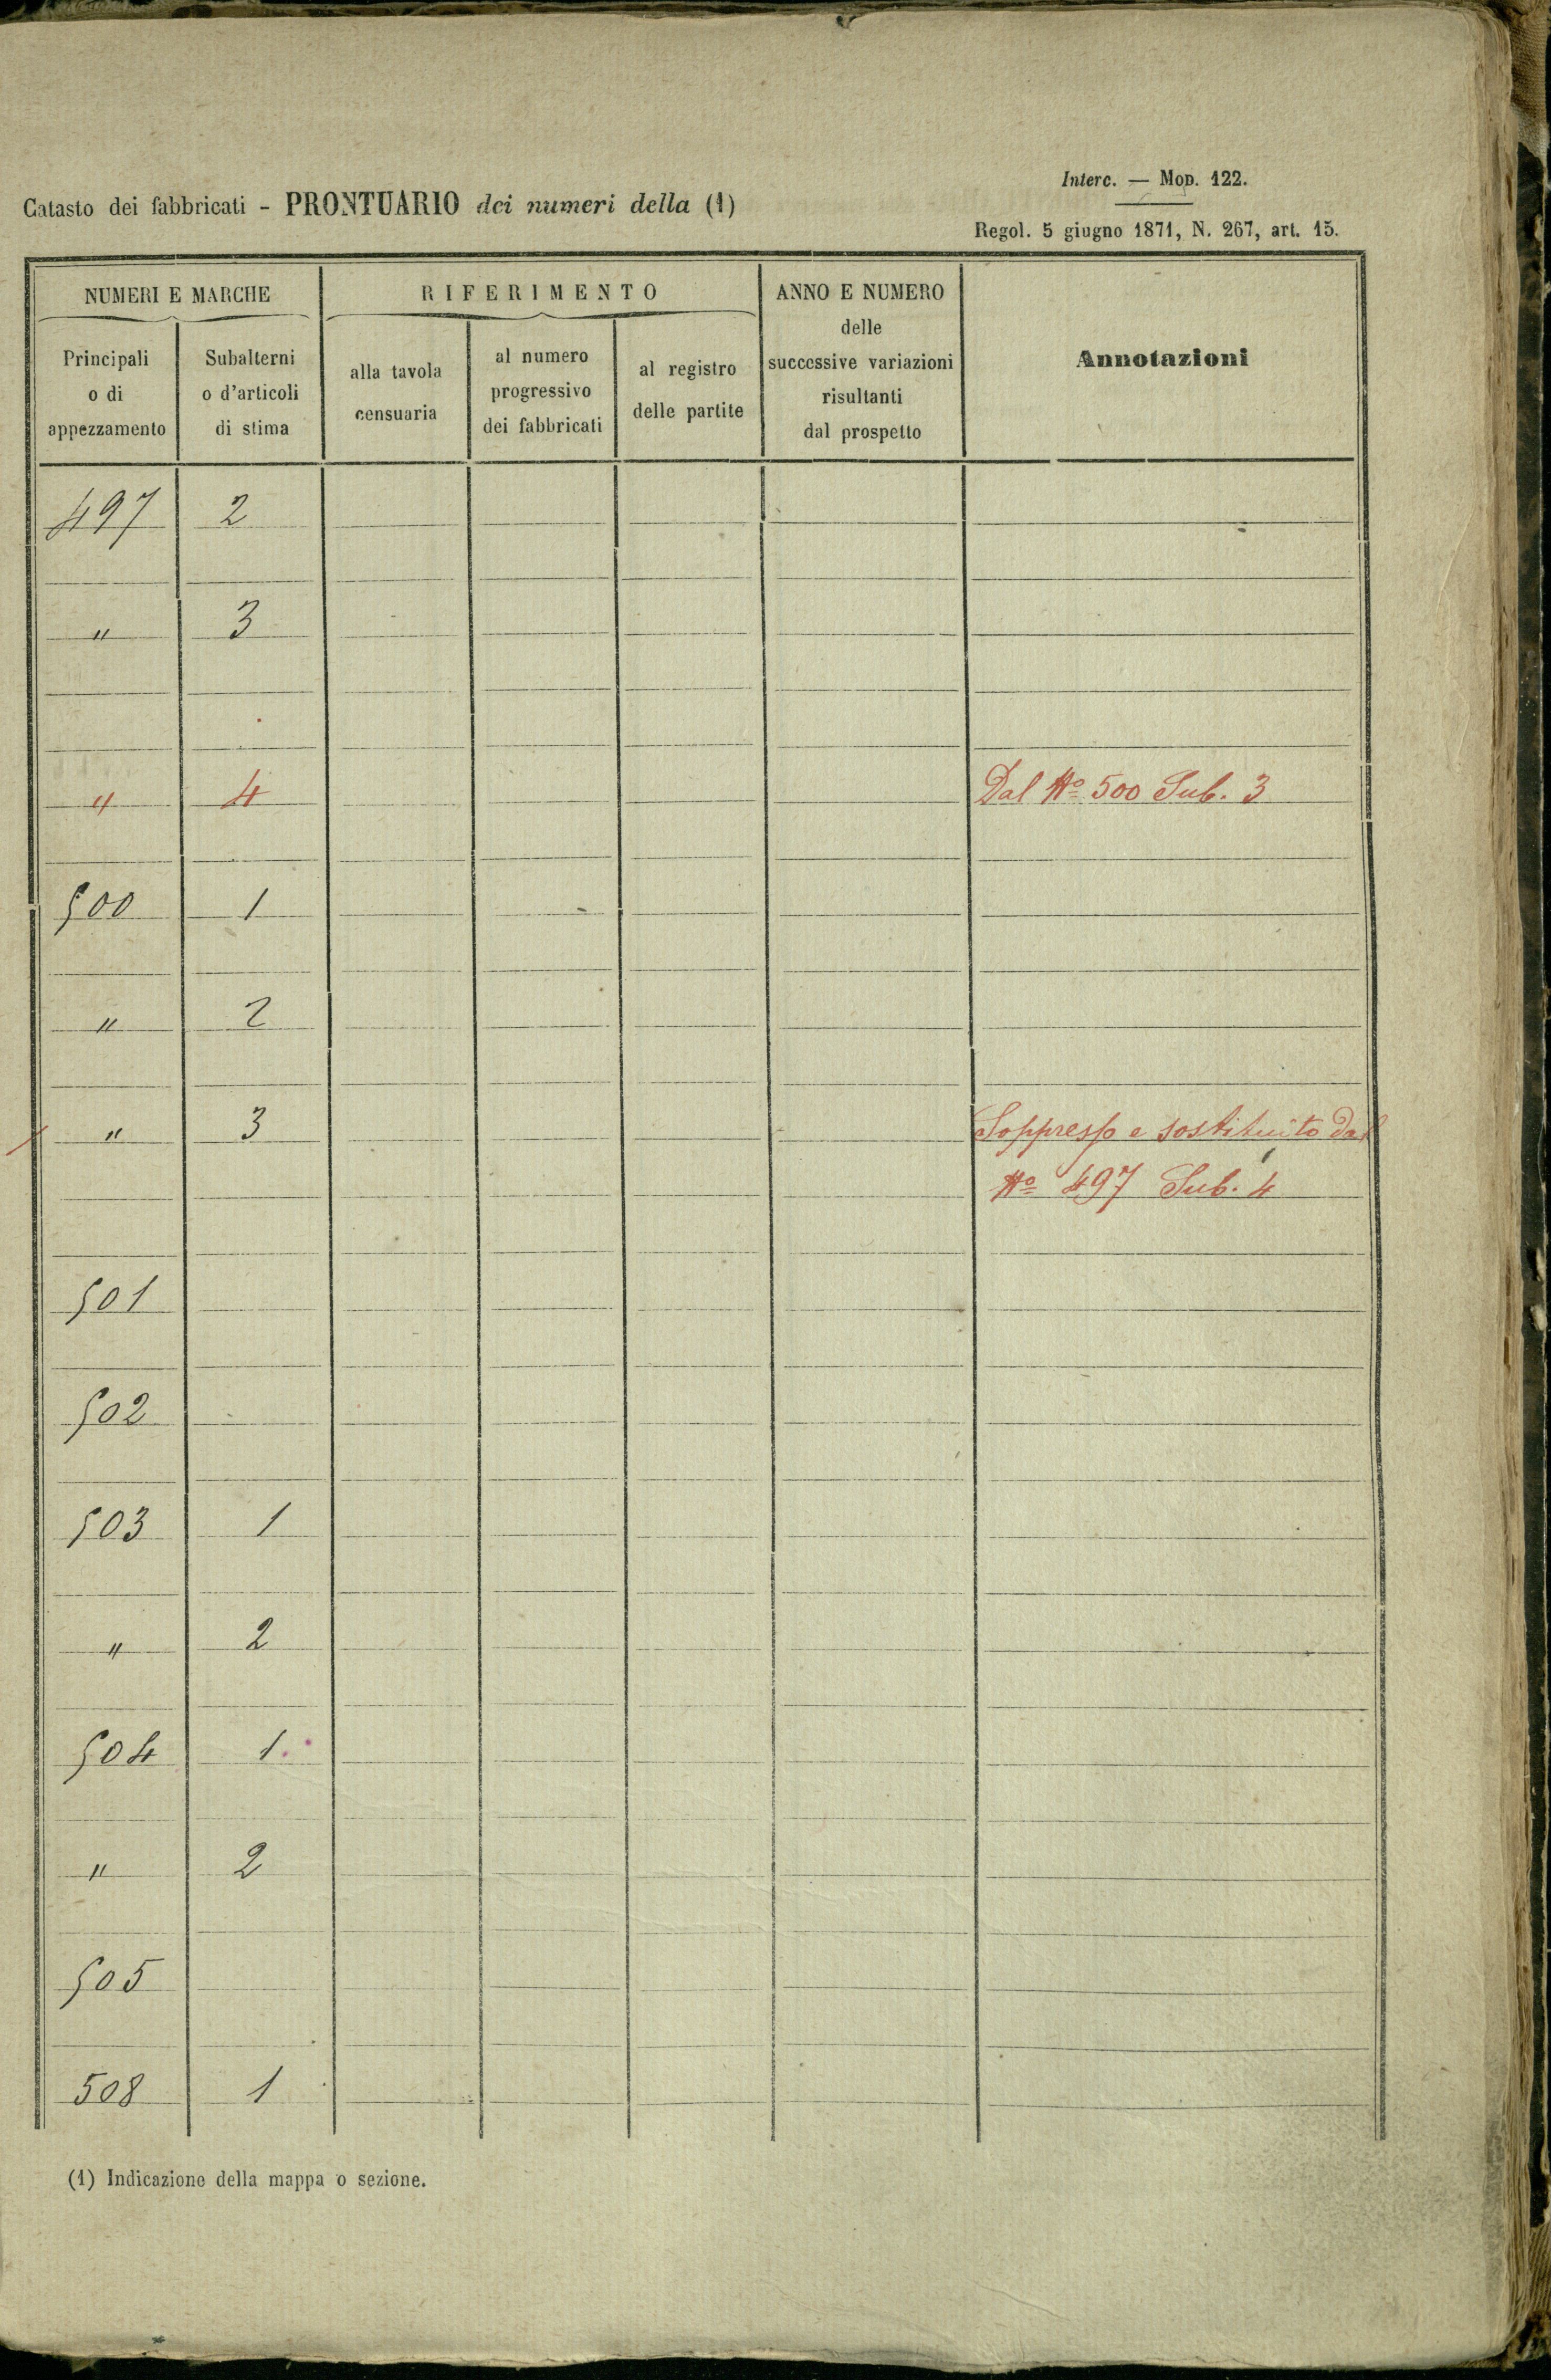 Interc. — Mod. 122.
Catasto dei fabbricati - PRONTUARIO dei numeri della (1)
Regol. 5 giugno 1871, N. 267, art. 15.
NUMERI E MARCHE
RIFERIMENTO
ANNO E NUMERO
delle
successive variazioni
risultanti
dal prospetto
Annotazioni
Principali
o di
appezzamento
Subalterni
o d'articoli
di stima
alla tavola
censuaria
al numero
progressivo
dei fabbricati
al registro
delle partite
497 2
" 3
" 4 Dal No 500 Sub. 3
500 1
" 2
" 3 Soppresso e sostituito dal
No 497 Sub. 4
501
502
503 1
" 2
504 1
" 2
505
508 1
(1) Indicazione della mappa o sezione.